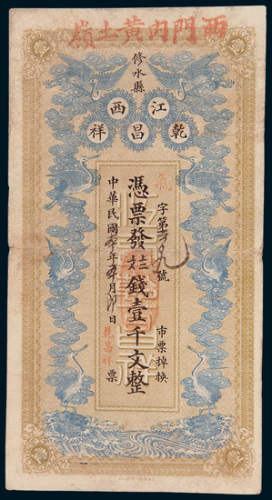 西門內黃土嶺
修水縣
江西
乾昌祥
字第 號
憑票發 錢壹千文整
中華民國 年 月 日
市票掉換
乾昌祥票